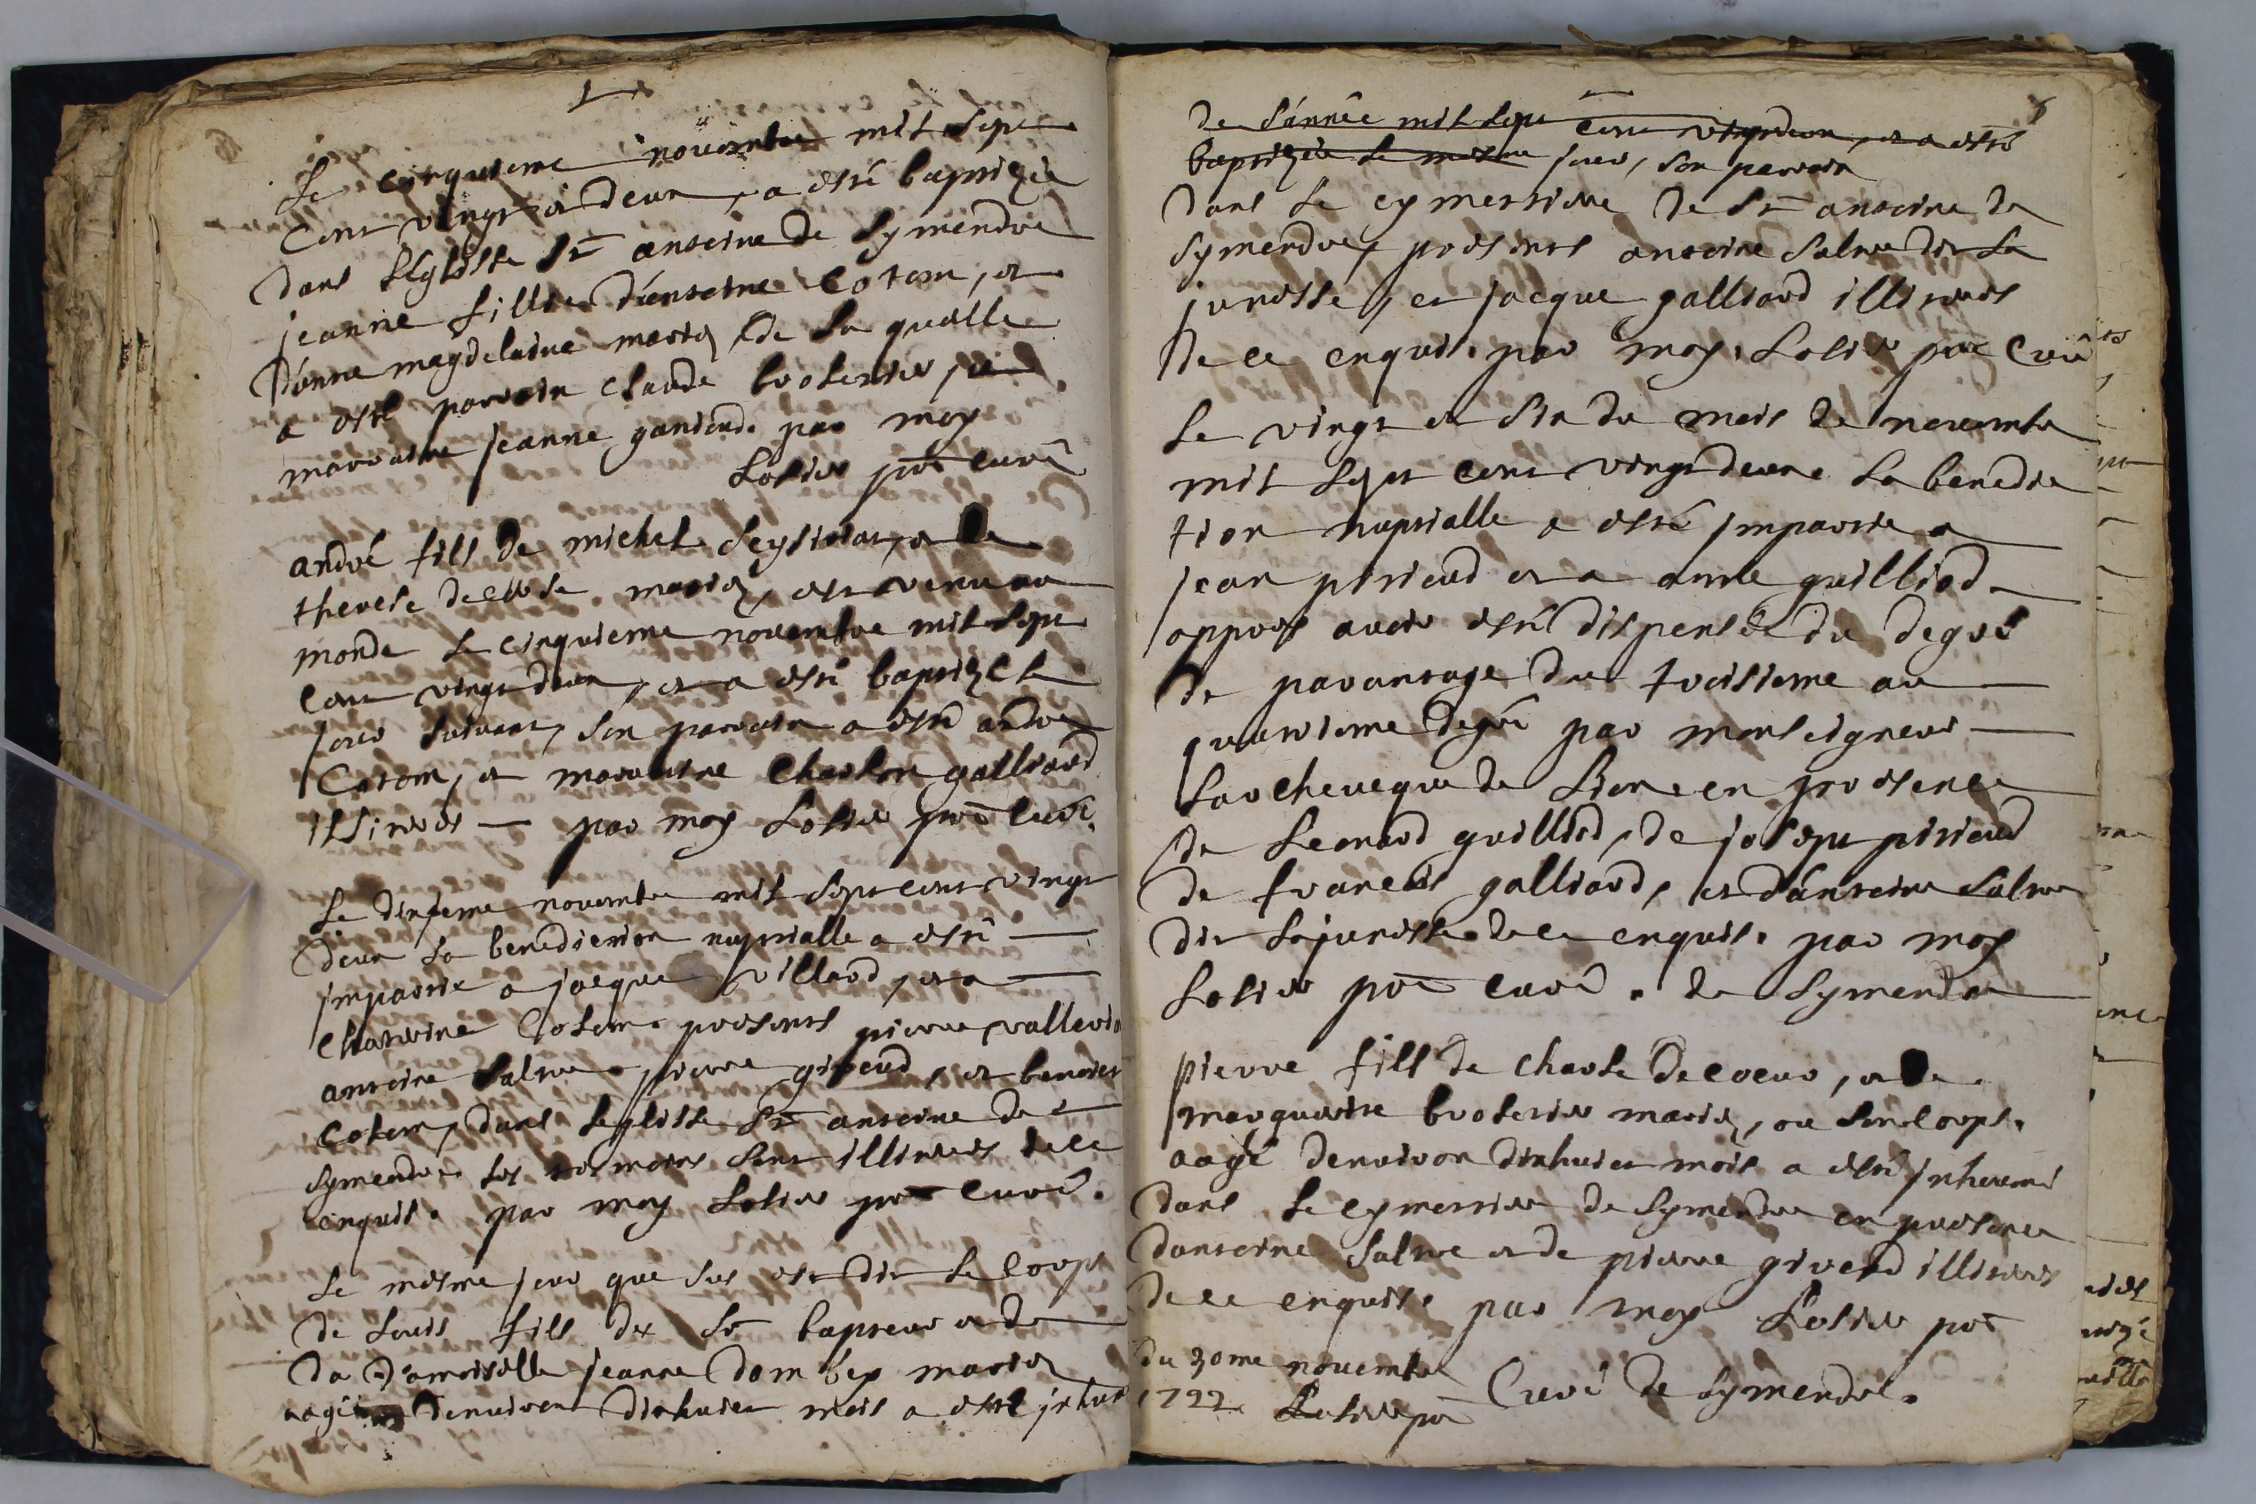 Le cinquieme novembre mil sept
cent vingt et deux, a esté baptizée
dans L'eglisse St antoine de Symendre
jeanne fillie d'antoine Cotom, et
D'anne magdelaine mariez, de La quelle
a esté parrain Claude broterier, et
marraine jeanne ganiend. par moy
Lolier pre curé
andré fils de michel Seytivias, et de
therese mariez, est venu au
monde le cinquieme novembre mil sept
cent vingt deux, et a esté baptizé le
jour suivant, son parrain a esté andre
Cotom, et marraine Charlon galliard
illiterés par moy Lolier pre curé.
Le dixieme novembre mil sept cent vingt
deux La benediction nuptialle a esté
jmpartie a jacque villard, et a
Chaterine Cotom presents pierre vallerin
antoine Salme pierre giroud, et benoict
Cotom, dans L'eglisse St antoine de
Symendre les tesmoins sont illiterés de ce
enquis. par moy Lolier pre curé.
Le mesme jour que sus est dit Le corps
de Louis fils de Sr bapteur et de
Da Damoiselle jeanne dombey mariez
aagé denviron dixhuict mois a esté jnhum
6
de L'année mil sept cent vingt deux, et a esté
baptizée le mesme jour, son parrain
dans Le cymettiere de St antoine de
Symendre, presents antoine Salme dit La
junesse, et jacque galliard illiterés
de ce enquis. par moy. Lolier pre Curé
Le vingt et six du mois de novembre
mil sept cent vingt deux La benedic
tion nuptialle a esté jmpartie a
jean pirioud et a anne guilliod
appres avoir esté dispensés du degré
de parantage du troisieme au
quatrieme degré par monseigneur
Larcheveque de Lion en presence
de Leonard guilliod, de joseph pirioud
de francois galliard, et d'antoine Salme
dit Lajunesse de ce enquis. par moy
Lolier pre Curé. de Symendre
pierre fils de Charle Decoeur, et de
marguerite broterier mariez, ou son corps.
aagé denviron dixhuict mois a esté jnhumé
dans Le cymettiere de Symendre en presence
dantoine Salme et de pierre giroud illiterés
de ce enquis. par moy Lolier pre
Curé de Symendre.
du 30me novembre
1722 Lolier pre